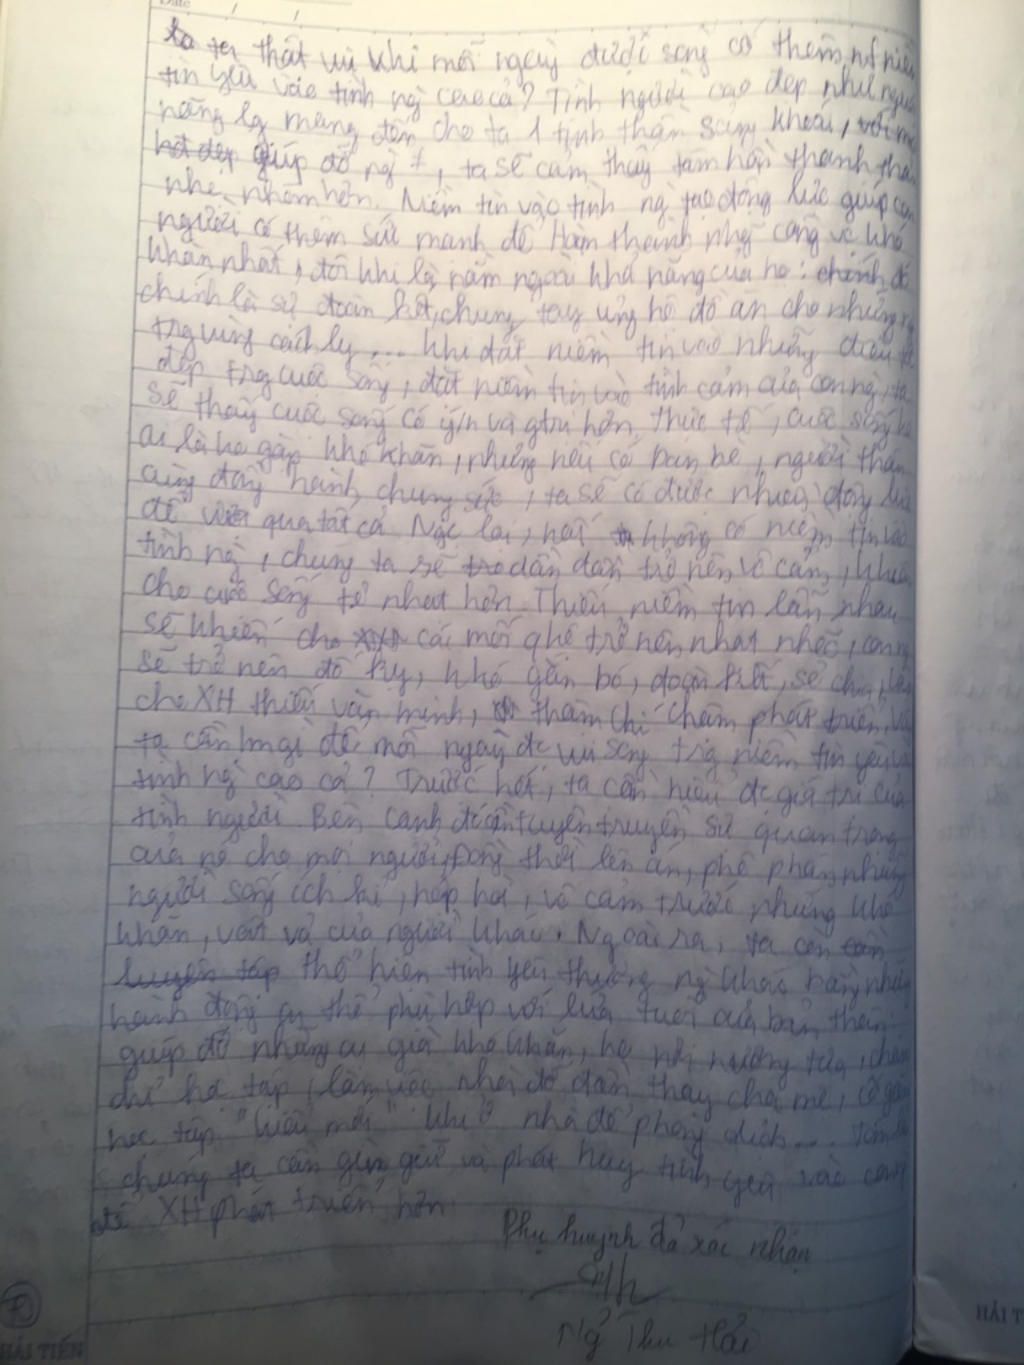 Date / /
ta thật vui khi mỗi ngày được sống có thêm niềm
tin yêu vào tình ng` cao cả? Tình người cao đẹp như nguồn
năng lg mang đến cho ta 1 tinh thần sảng khoái, với mỗi
giúp đỡ ng` ≠, ta sẽ cảm thấy tâm hồn thanh thản
nhẹ nhõm hơn. Niềm tin vào tình ng` tạo động lực giúp con
người có thêm sức mạnh để hoàn thành nhg~ công vc khó
khăn nhất, đôi khi là nằm ngoài khả năng của họ: đó
chính là sự đoàn kết, chung tay ủng hộ đồ ăn cho những
trg vùng cách ly ... Khi đặt niềm tin vào những điều tốt
đẹp trg cuộc sống, đặt niềm tin vào tình cảm của con ng`, ta
sẽ thấy cuộc sống có ý/n và gtrị hơn. Thực tế, cuộc sống
ai là ko gặp khó khăn, nhưng nếu có bạn bè, người thân
cùng đồng hành, chung sức, ta sẽ có được nhiều động lực
để vượt qua tất cả. Ngc lại, nếu không có niềm tin vào
tình ng`, chúng ta sẽ dần dần trở nên vô cảm, khiến
cho cuộc sống tẻ nhạt hơn. Thiếu niềm tin lẫn nhau
sẽ khiến cho các mối qhệ trở nên nhạt nhẽo, con ng`
sẽ trở nên đố kỵ, khó gắn bó, đoàn kết, sẽ làm
cho XH thiếu văn minh, thậm chí chậm phát triển. Vậy
ta cần lm gì để mỗi ngày đc vui sống trg niềm tin yêu và
tình ng` cao cả? Trước hết, ta cần hiểu đc giá trị của
tình người. Bên cạnh đó cần tuyên truyền sự quan trọng
của nó cho mọi người. Đồng thời lên án, phê phán những
người sống ích kỉ, hẹp hòi, vô cảm trước những khó
khăn, vất vả của người khác. Ngoài ra, ta cần
luyện tập thể hiện tình yêu thương ng` khác bằng những
hành động cụ thể phù hợp với lứa tuổi của bản thân:
giúp đỡ những cụ già khó khăn, ko nơi nương tựa, chăm
chỉ học tập, làm việc nhà đỡ đần thay cha mẹ, cố gắng
học tập "kiểu mới" khi ở nhà để phòng dịch ... Tóm lại
chúng ta cần gìn giữ và phát huy tình yêu vào
để XH phát triển hơn
Phụ huynh đã xác nhận
Ng~ Thu Hải
HẢI TIẾN
HẢI T